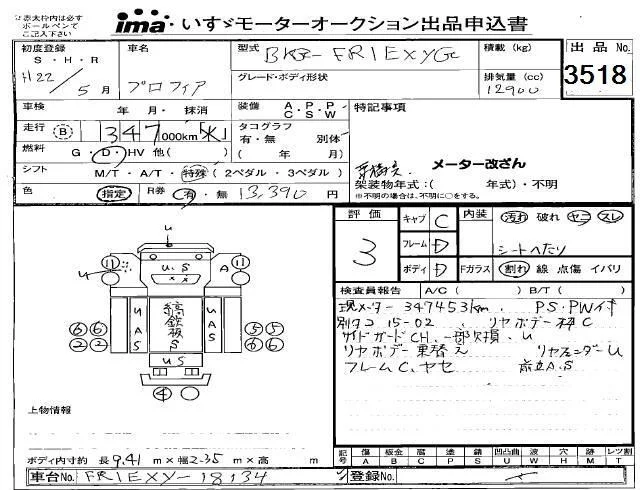 ※赤太枠内は必ず
ボールペンで
ご記入下さい
ima いすゞモーターオークション出品申込書
初度登録
S・H・R
H22 / 5 月
車名
プロフィア
型式 BKG-FR1EXYG
グレード・ボディ形状
積載 (kg)
排気量 (cc)
12900
出品 No.
3518
車検 年 月・抹消
装備 A・P・P C・S・W
特記事項
走行 B 1347,000km「水」
タコグラフ
有・無 別体
( 年 月)
燃料 G・D・HV 他( )
シフト M/T・A/T・特殊 (2ペダル・3ペダル)
メーター改ざん
架装物年式:( 年式)・不明
※不明の場合は、不明に○をする。
色 指定 R券 有・無 13,390 円
評価
3
キャブ C
フレーム D
ボディ D
内装 汚れ 破れ ヤニ スレ
1シートへたり
Fガラス 割れ 線 点傷 イバリ
検査員報告 A/C( ) B/T( )
現メーター347453km PS・PWイキ
別タコ 15-02 、リヤボデー枠C
サイドガードCH、一部欠損、U
リヤボデー乗替え リヤフェンダーU
フレームC、ヤセ 前立A.S
U
11 U.S A 11
U
66 22 UAS 縞鉄板S UAS 55 66
US
4
上物情報
ボディ内寸約 長 9.41 m×幅 2.35 m×高 m
記号 傷A 板金B 腐C 塗P 錆S 凹凸曲U 波W 穴H 跡M レツ割T
車台No. FR1EXY-18134
登録No.